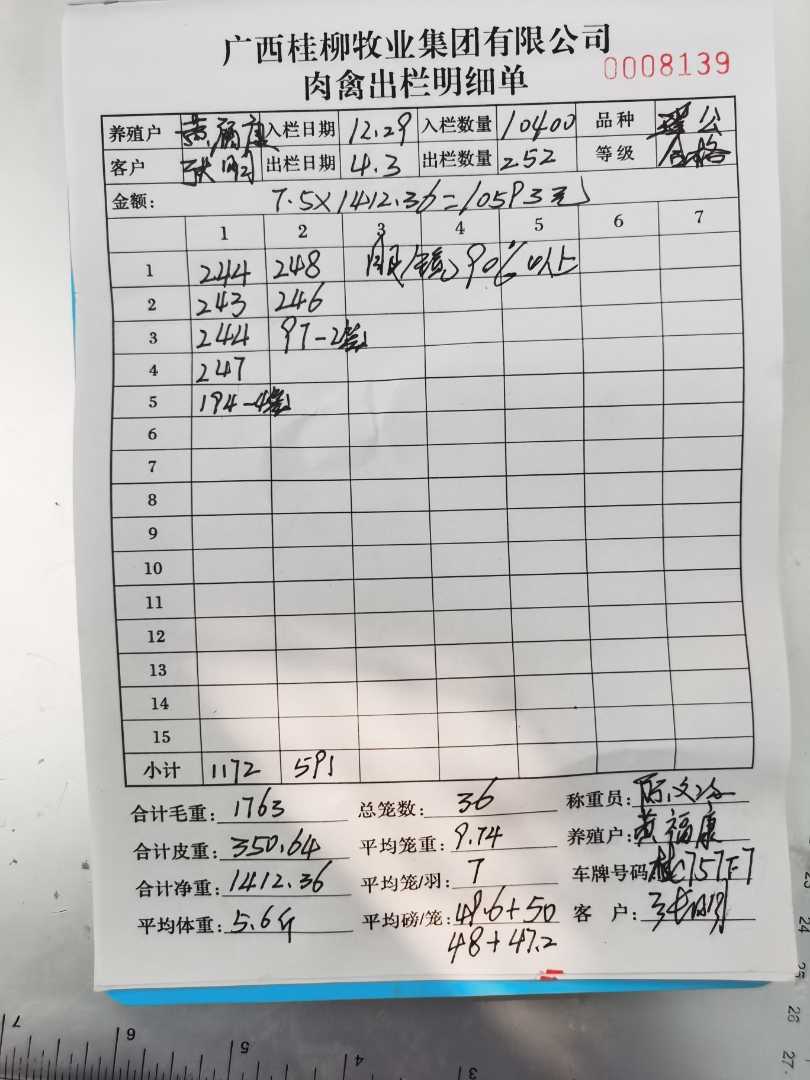 广西桂柳牧业集团有限公司
肉禽出栏明细单 0008139
养殖户 黄福康 入栏日期 12.29 入栏数量 10400 品种 瑶公
客户 张明 出栏日期 4.3 出栏数量 252 等级 合格
金额: 7.5×1412.36=10593元
1 2 3 4 5 6 7
1 244 248 90%以上
2 243 246
3 244 97-2笼
4 247
5 194-4笼
6
7
8
9
10
11
12
13
14
15
小计 1172 591
合计毛重: 1763 总笼数: 36 称重员:
合计皮重: 350.64 平均笼重: 9.74 养殖户: 黄福康
合计净重: 1412.36 平均笼/羽: 7 车牌号码: 桂C757F7
平均体重: 5.6斤 平均磅/笼: 49.6+50 客 户: 张明
48+47.2
7 6 5 4 3
23
24
25
26
27